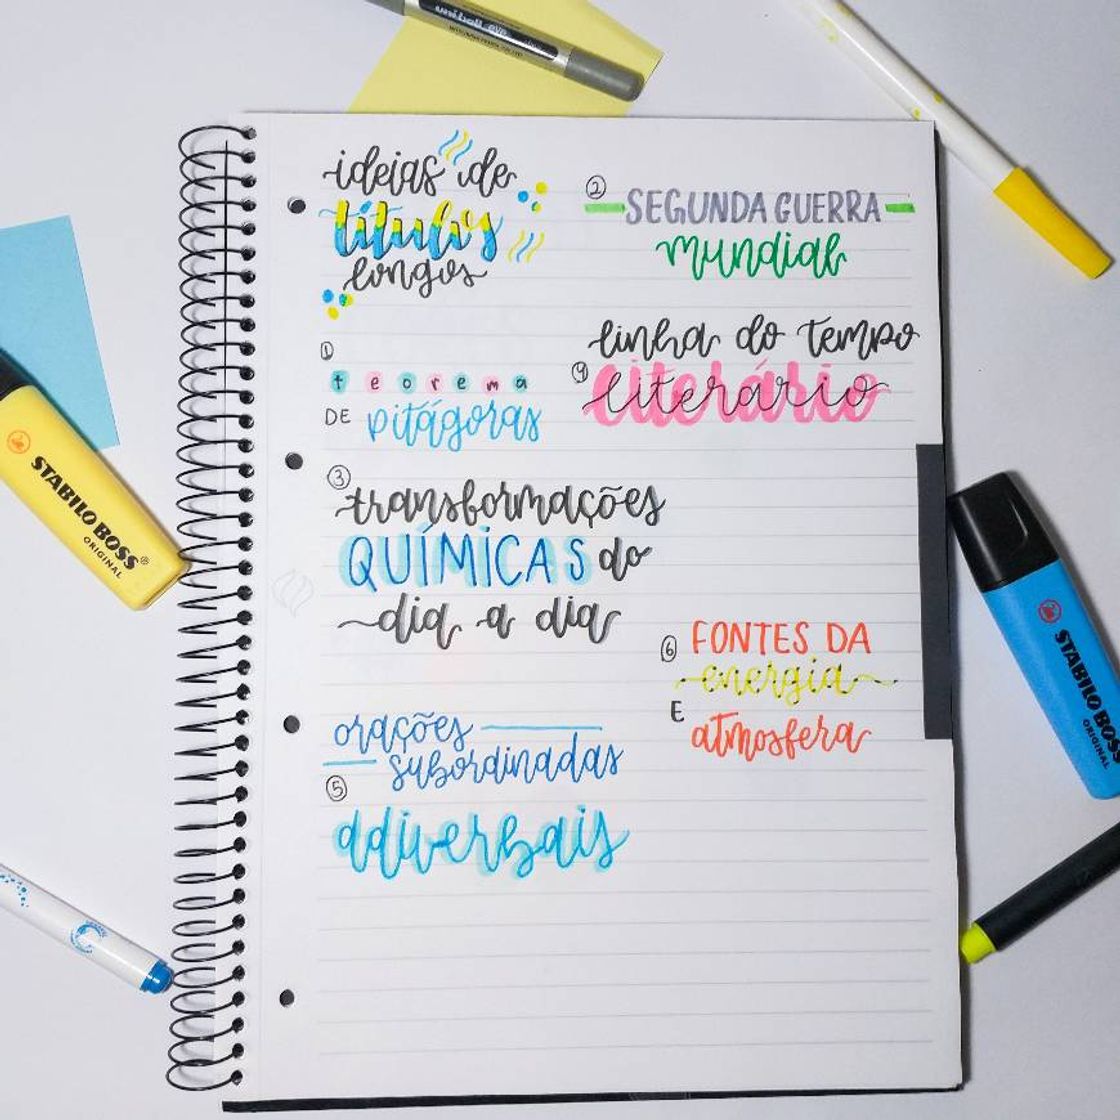 uniball eye
ideias de
títulos
longos
① teorema
DE pitágoras
② SEGUNDA GUERRA
mundial
③ transformações
QUÍMICAS do
dia a dia
④ linha do tempo
literário
orações
subordinadas
⑤ adiverbais
⑥ FONTES DA
energia
E
atmosfera
STABILO BOSS®
ORIGINAL
STABILO BOSS
ORIGINAL